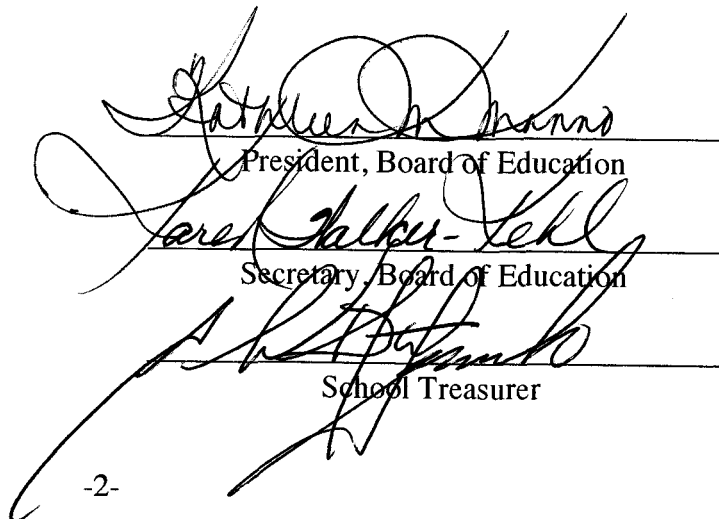 Kathleen M Manno
President, Board of Education
Karen Walker-Kehl
Secretary, Board of Education
School Treasurer
-2-